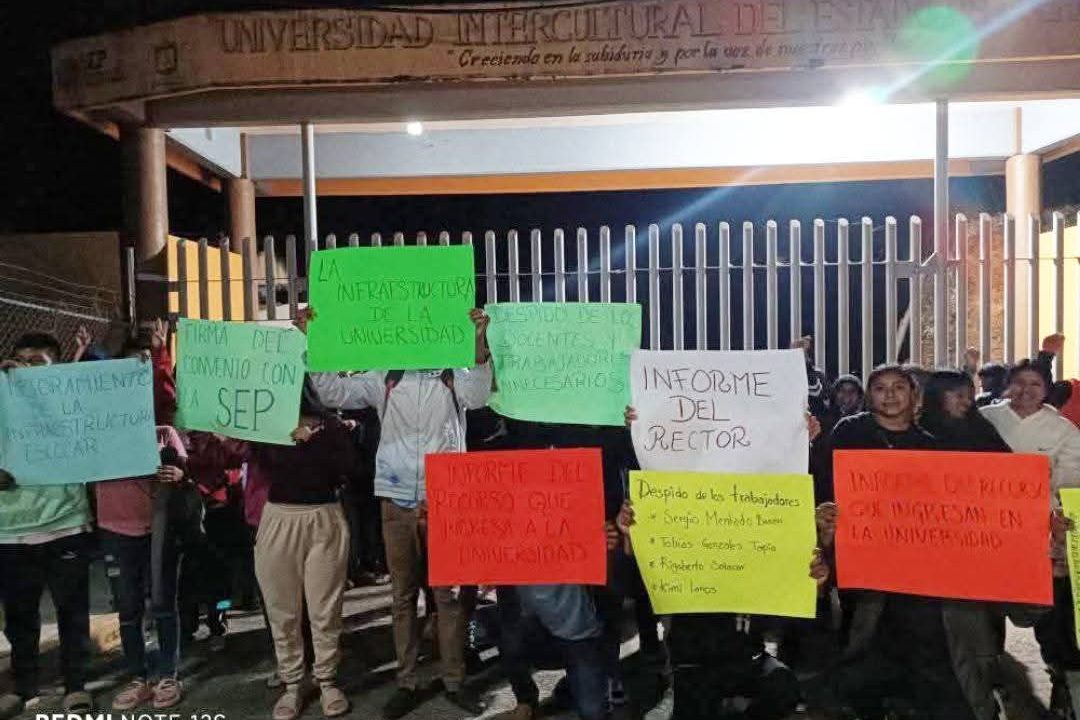 UNIVERSIDAD INTERCULTURAL DEL ESTADO
"Creciendo en la sabiduria y por la voz de nuestro
LA
INFRAESTRUCTURA
DE LA
UNIVERSIDAD
FIRMA DEL
CONVENIO CON
SEP
MEJORAMIENTO
DE LA
INFRAESTRUCTURA
ESCOLAR
DESPIDO DE LOS
DOCENTES Y
TRABAJADORES
INNECESARIOS
INFORME
DEL
RECTOR
INFORME DEL
RECURSO QUE
INGRESA A LA
UNIVERSIDAD
Despido de los trabajadores
* Sergio Mentado
* Tobias Gonzales Tapia
* Rigoberto Salazar
* Kimi
INFORME DE RECURSO
QUE INGRESAN EN
LA UNIVERSIDAD
REDMI NOTE 12S